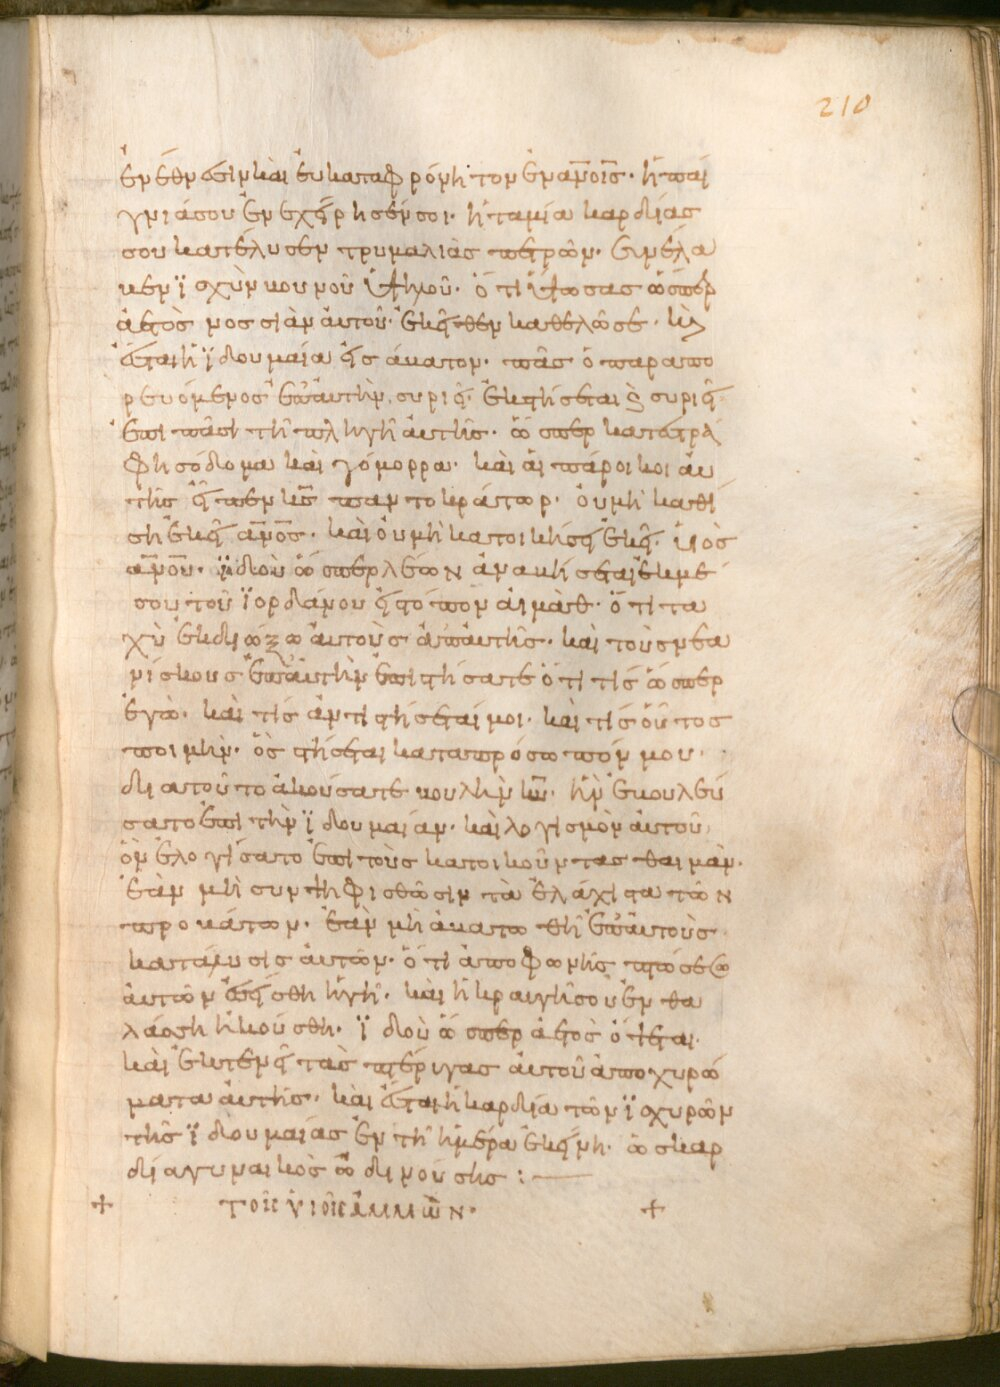 210
ἐν ἔθνεσιν καὶ εὐκαταφρόνητον ἐν ἀν̅οις. ἡ παι
γνιά σου ἐνεχείρησέν σοι. ἡ ταμία καρδίας
σου κατέλυσεν τρυμαλιὰς πετρῶν. συνέλα
κεν ϊσχὺν βουνοῦ ὑψηλοῦ. ὅτι ὕψωσας ὥσπερ
ἀετὸς νοσσιὰν αὐτοῦ. ἐκεῖθεν καθελῶ σε. κ(αὶ)
ἔσται ἡ ϊδουμαία εἰς ἄβατον. πᾶς ὁ παραπο
ρευόμενος ἐπ' αὐτὴν, συριεῖ. ἐκστήσεται καὶ συριεῖ
ἐπὶ πάσῃ τῇ πληγῇ αὐτῆς. ὥσπερ κατεστρά
φη σόδομα καὶ γόμορρα. καὶ αἱ πάροικοι αὐ
τῆς εἶπεν κ̅ς παντοκράτωρ. οὐ μὴ καθί
σῃ ἐκεῖ ἀν̅ος. καὶ οὐ μὴ κατοικήσει ἐκεῖ. υἱὸς
ἀν̅ου. ϊδοὺ ὥσπερ λέων ἀναβήσεται ἐκ μέ
σου τοῦ ϊορδάνου εἰς τόπον αἰμὰθ. ὅτι τα
χὺ ἐκδιώξω αὐτοὺς ἀπ' αὐτῆς. καὶ τοὺς νεα
νίσκους ἐπ' αὐτὴν ἐπιστήσατε ὅτι τίς ὥσπερ
ἐγώ. καὶ τίς ἀντιστήσεταί μοι. καὶ τίς οὗτος
ποιμὴν. ὃς στήσεται κατὰ πρόσωπόν μου.
διατοῦτο ἀκούσατε βουλὴν κ̅υ. ἣν ἐβουλεύ
σατο ἐπὶ τὴν ϊδουμαίαν. καὶ λογισμὸν αὐτοῦ,
ὃν ἐλογίσατο ἐπὶ τοὺς κατοικοῦντας θαιμάν.
ἐὰν μὴ συνψηφισθῶσιν τὰ ἐλάχιστα τῶν
προβάτων. ἐὰν μὴ ἀβατωθῇ ἐπ' αὐτοὺς
κατάλυσις αὐτῶν. ὅτι ἀπὸ φωνῆς πτώσεω(ς)
αὐτῶν ἐσείσθη ἡ γῆ. καὶ ἡ κραυγή σου ἐν θα
λάσσῃ ἠκούσθη. ϊδοὺ ὥσπερ ἀετὸς ὄψεται.
καὶ ἐκτενεῖ τὰς πτέρυγας αὐτοῦ ἀπ' ὀχυρώ
ματα αὐτῆς. καὶ ἔσται ἡ καρδία τῶν ϊσχυρῶν
τῆς ϊδουμαίας ἐν τῇ ἡμέρᾳ ἐκείνῃ. ὡς καρ
δία γυναικὸς ὠδινούσης : —
+ τοῖς υἱοῖς ἀμμών. +